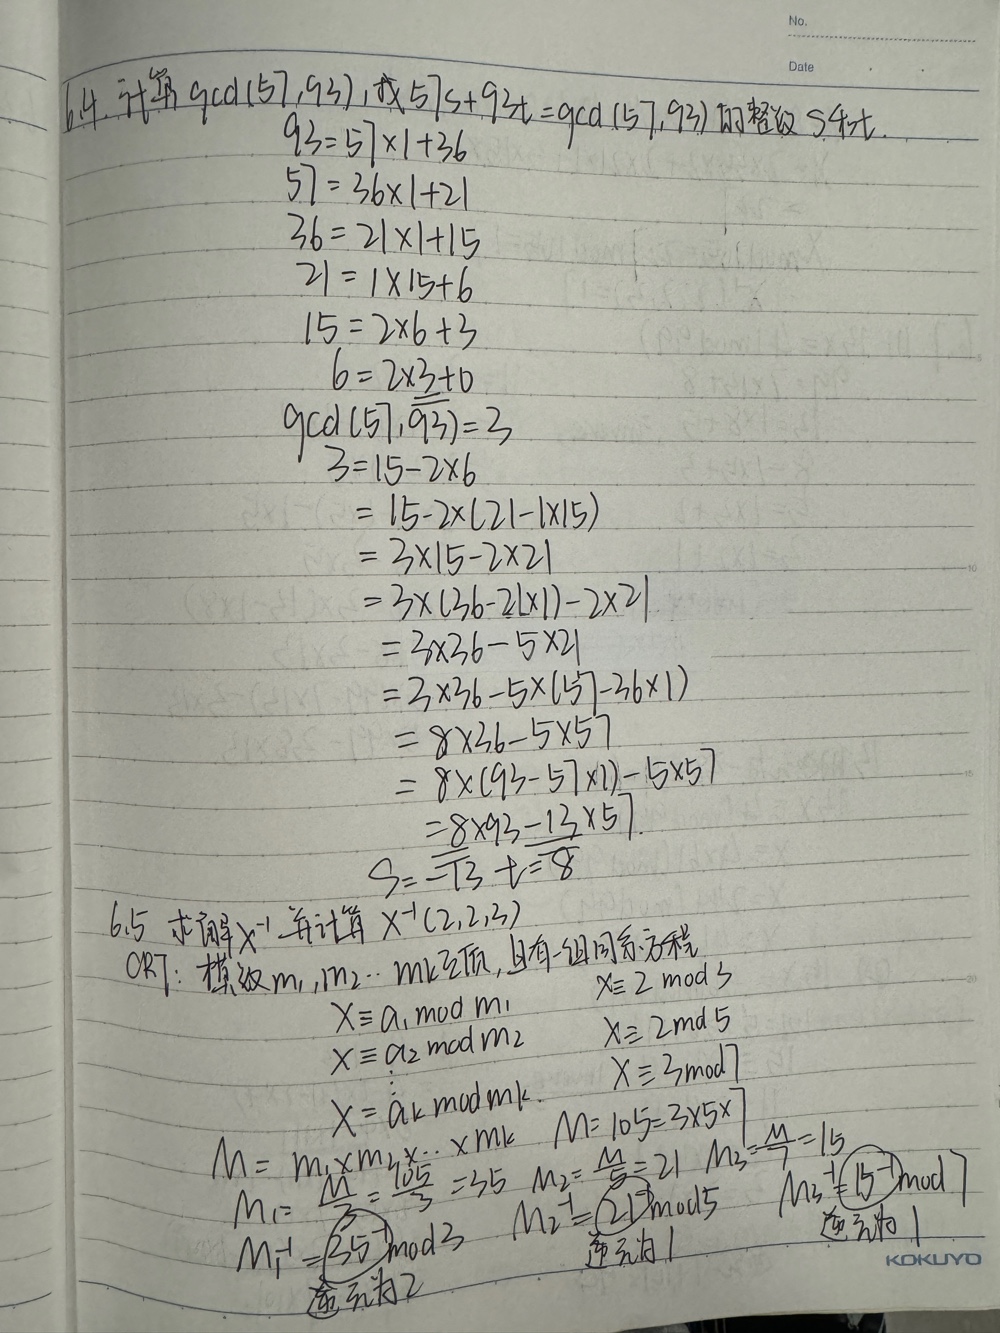 No.
Date
6.4. 计算gcd(57,93),找57s+93t=gcd(57,93)的整数s和t.
93=57×1+36
57=36×1+21
36=21×1+15
21=1×15+6
15=2×6+3
6=2×3+0
gcd(57,93)=3
3=15-2×6
=15-2×(21-1×15)
=3×15-2×21
=3×(36-21×1)-2×21
=3×36-5×21
=3×36-5×(57-36×1)
=8×36-5×57
=8×(93-57×1)-5×57
=8×93-13×57
S=-13 t=8
6.5 求解X⁻¹并计算X⁻¹(2,2,3)
CRT:模数m₁,m₂…mk互质,且有一组同余方程
X≡a₁modm₁ X≡2mod3
X≡a₂modm₂ X≡2md5
⋮ X≡3mod7
X=akmodmk.
M=m₁×m₂×…×mk M=105=3×5×7
M₁=M/3=105/3=35 M₂=M/5=21 M₃=M/7=15
M₁⁻¹=35⁻¹mod3 M₂⁻¹=21⁻¹mod5 M₃⁻¹=15⁻¹mod7
逆元为2 逆元为1 逆元为1
KOKUYO